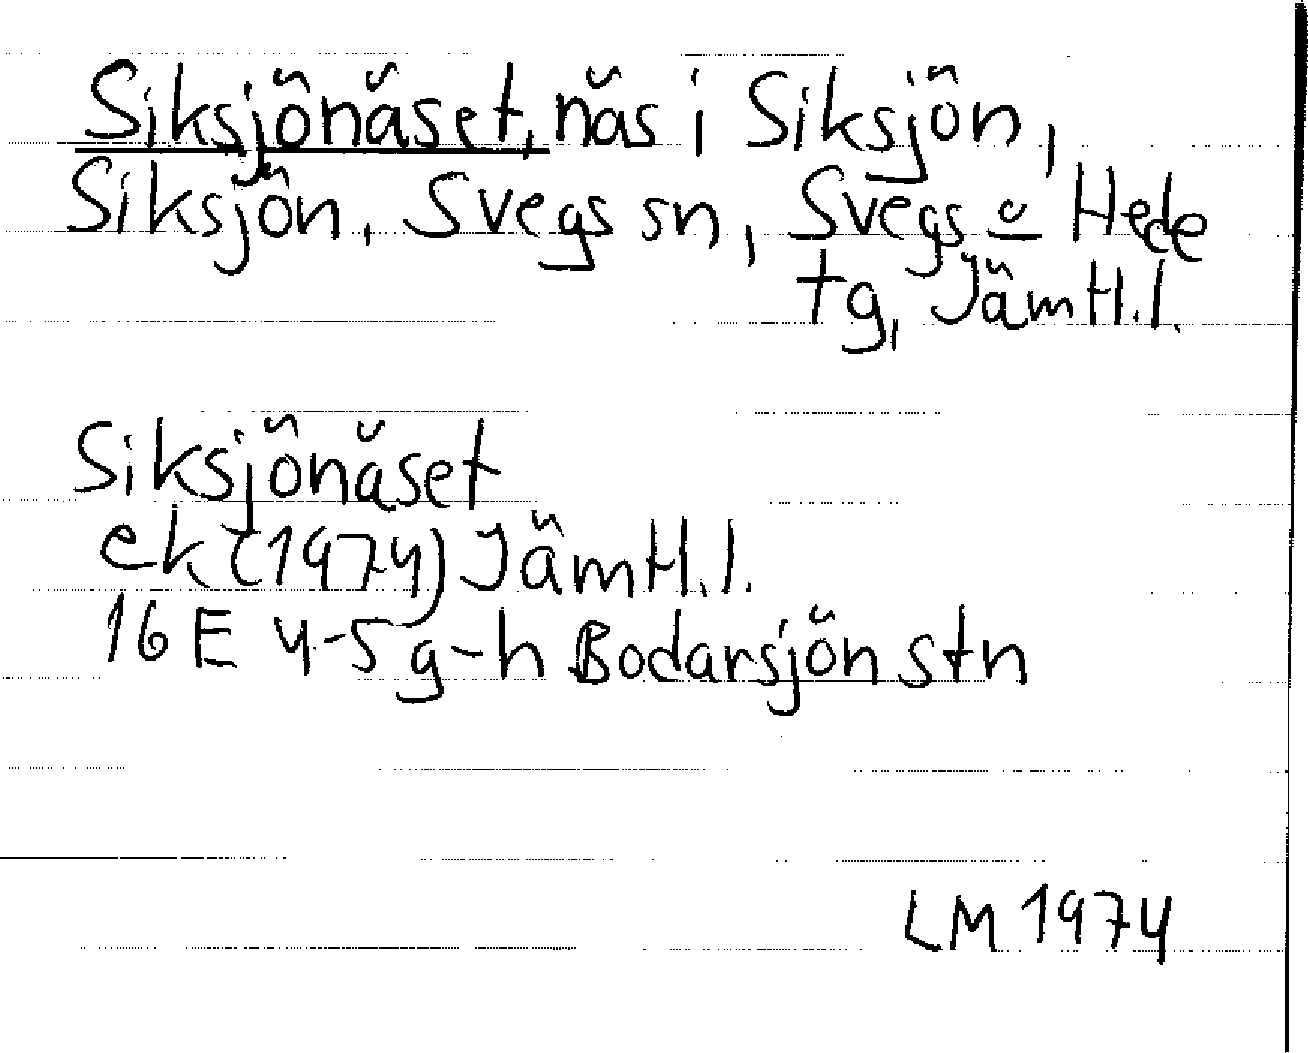 Siksjönäset, näs i Siksjön,
Siksjön, Svegs sn, Svegs o Hede
tg, Jämtl.l.
Siksjönäset
ek (1974) Jämtl.l.
16 E 4-5 g-h Bodarsjön stn
LM 1974